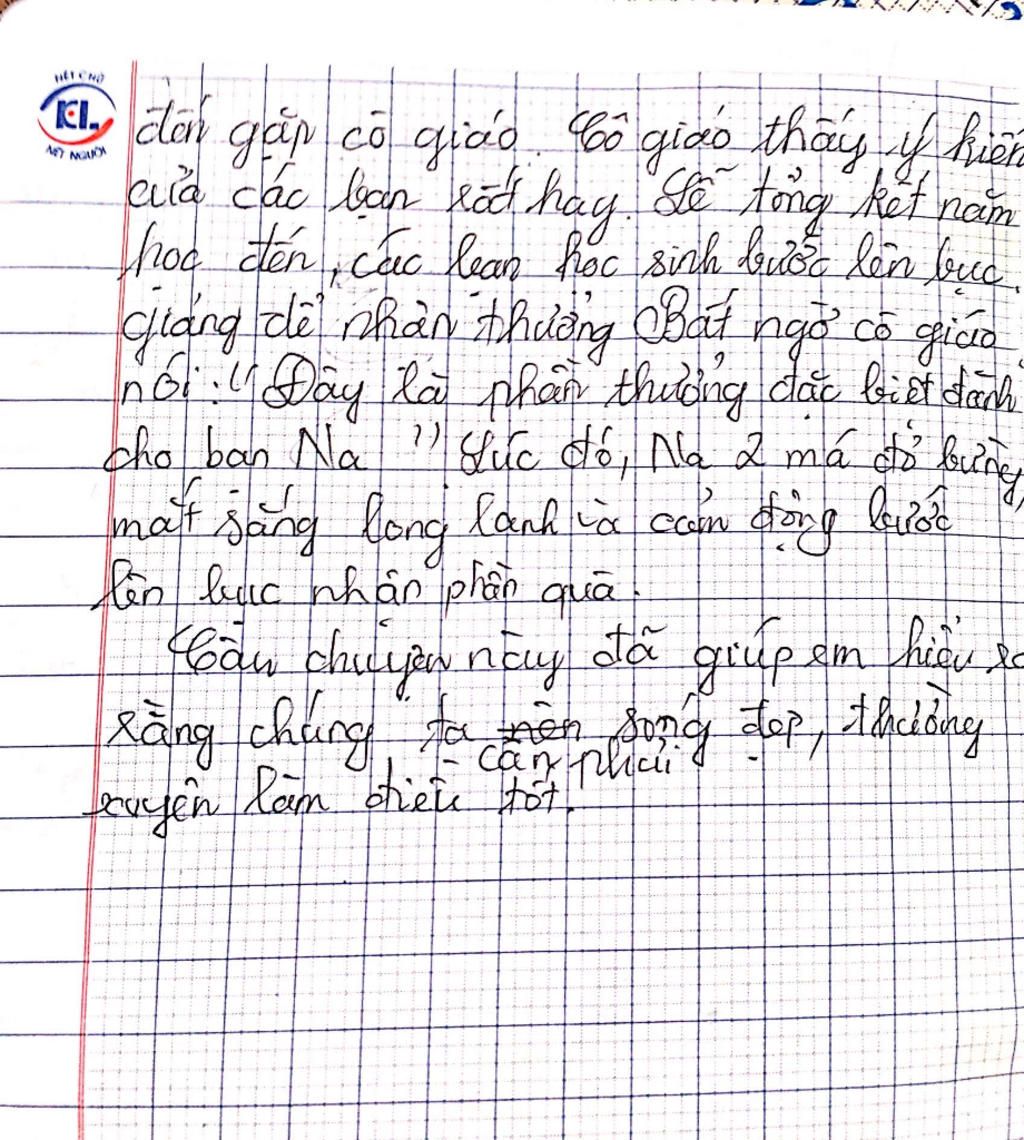 NÉT CHỮ
KL
NẾT NGƯỜI
đến gặp cô giáo. Cô giáo thấy ý kiến
của các bạn rất hay. Lễ tổng kết năm
học đến, các bạn học sinh bước lên bục
giảng để nhận thưởng Bất ngờ cô giáo
nói: "Đây là phần thưởng đặc biệt dành
cho bạn Na" Lúc đó, Na 2 má đỏ bừng,
mắt sáng long lanh và cảm động bước
lên bục nhận phần quà.
Câu chuyện này đã giúp em hiểu
rằng chúng ta nên sống đẹp, thường
cần phải
xuyên làm điều tốt.